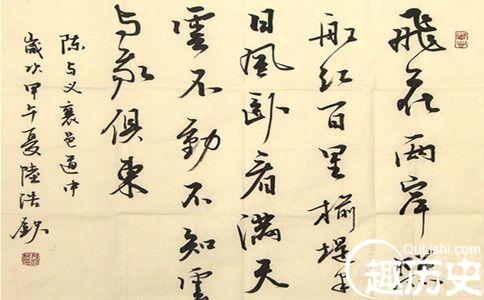 飛花兩岸照
船紅百里榆堤半
日風卧看滿天
雲不動不知雲
与我俱東
陈与义襄邑道中
歲次甲午夏陸浩
Qulishi.com
趣历史